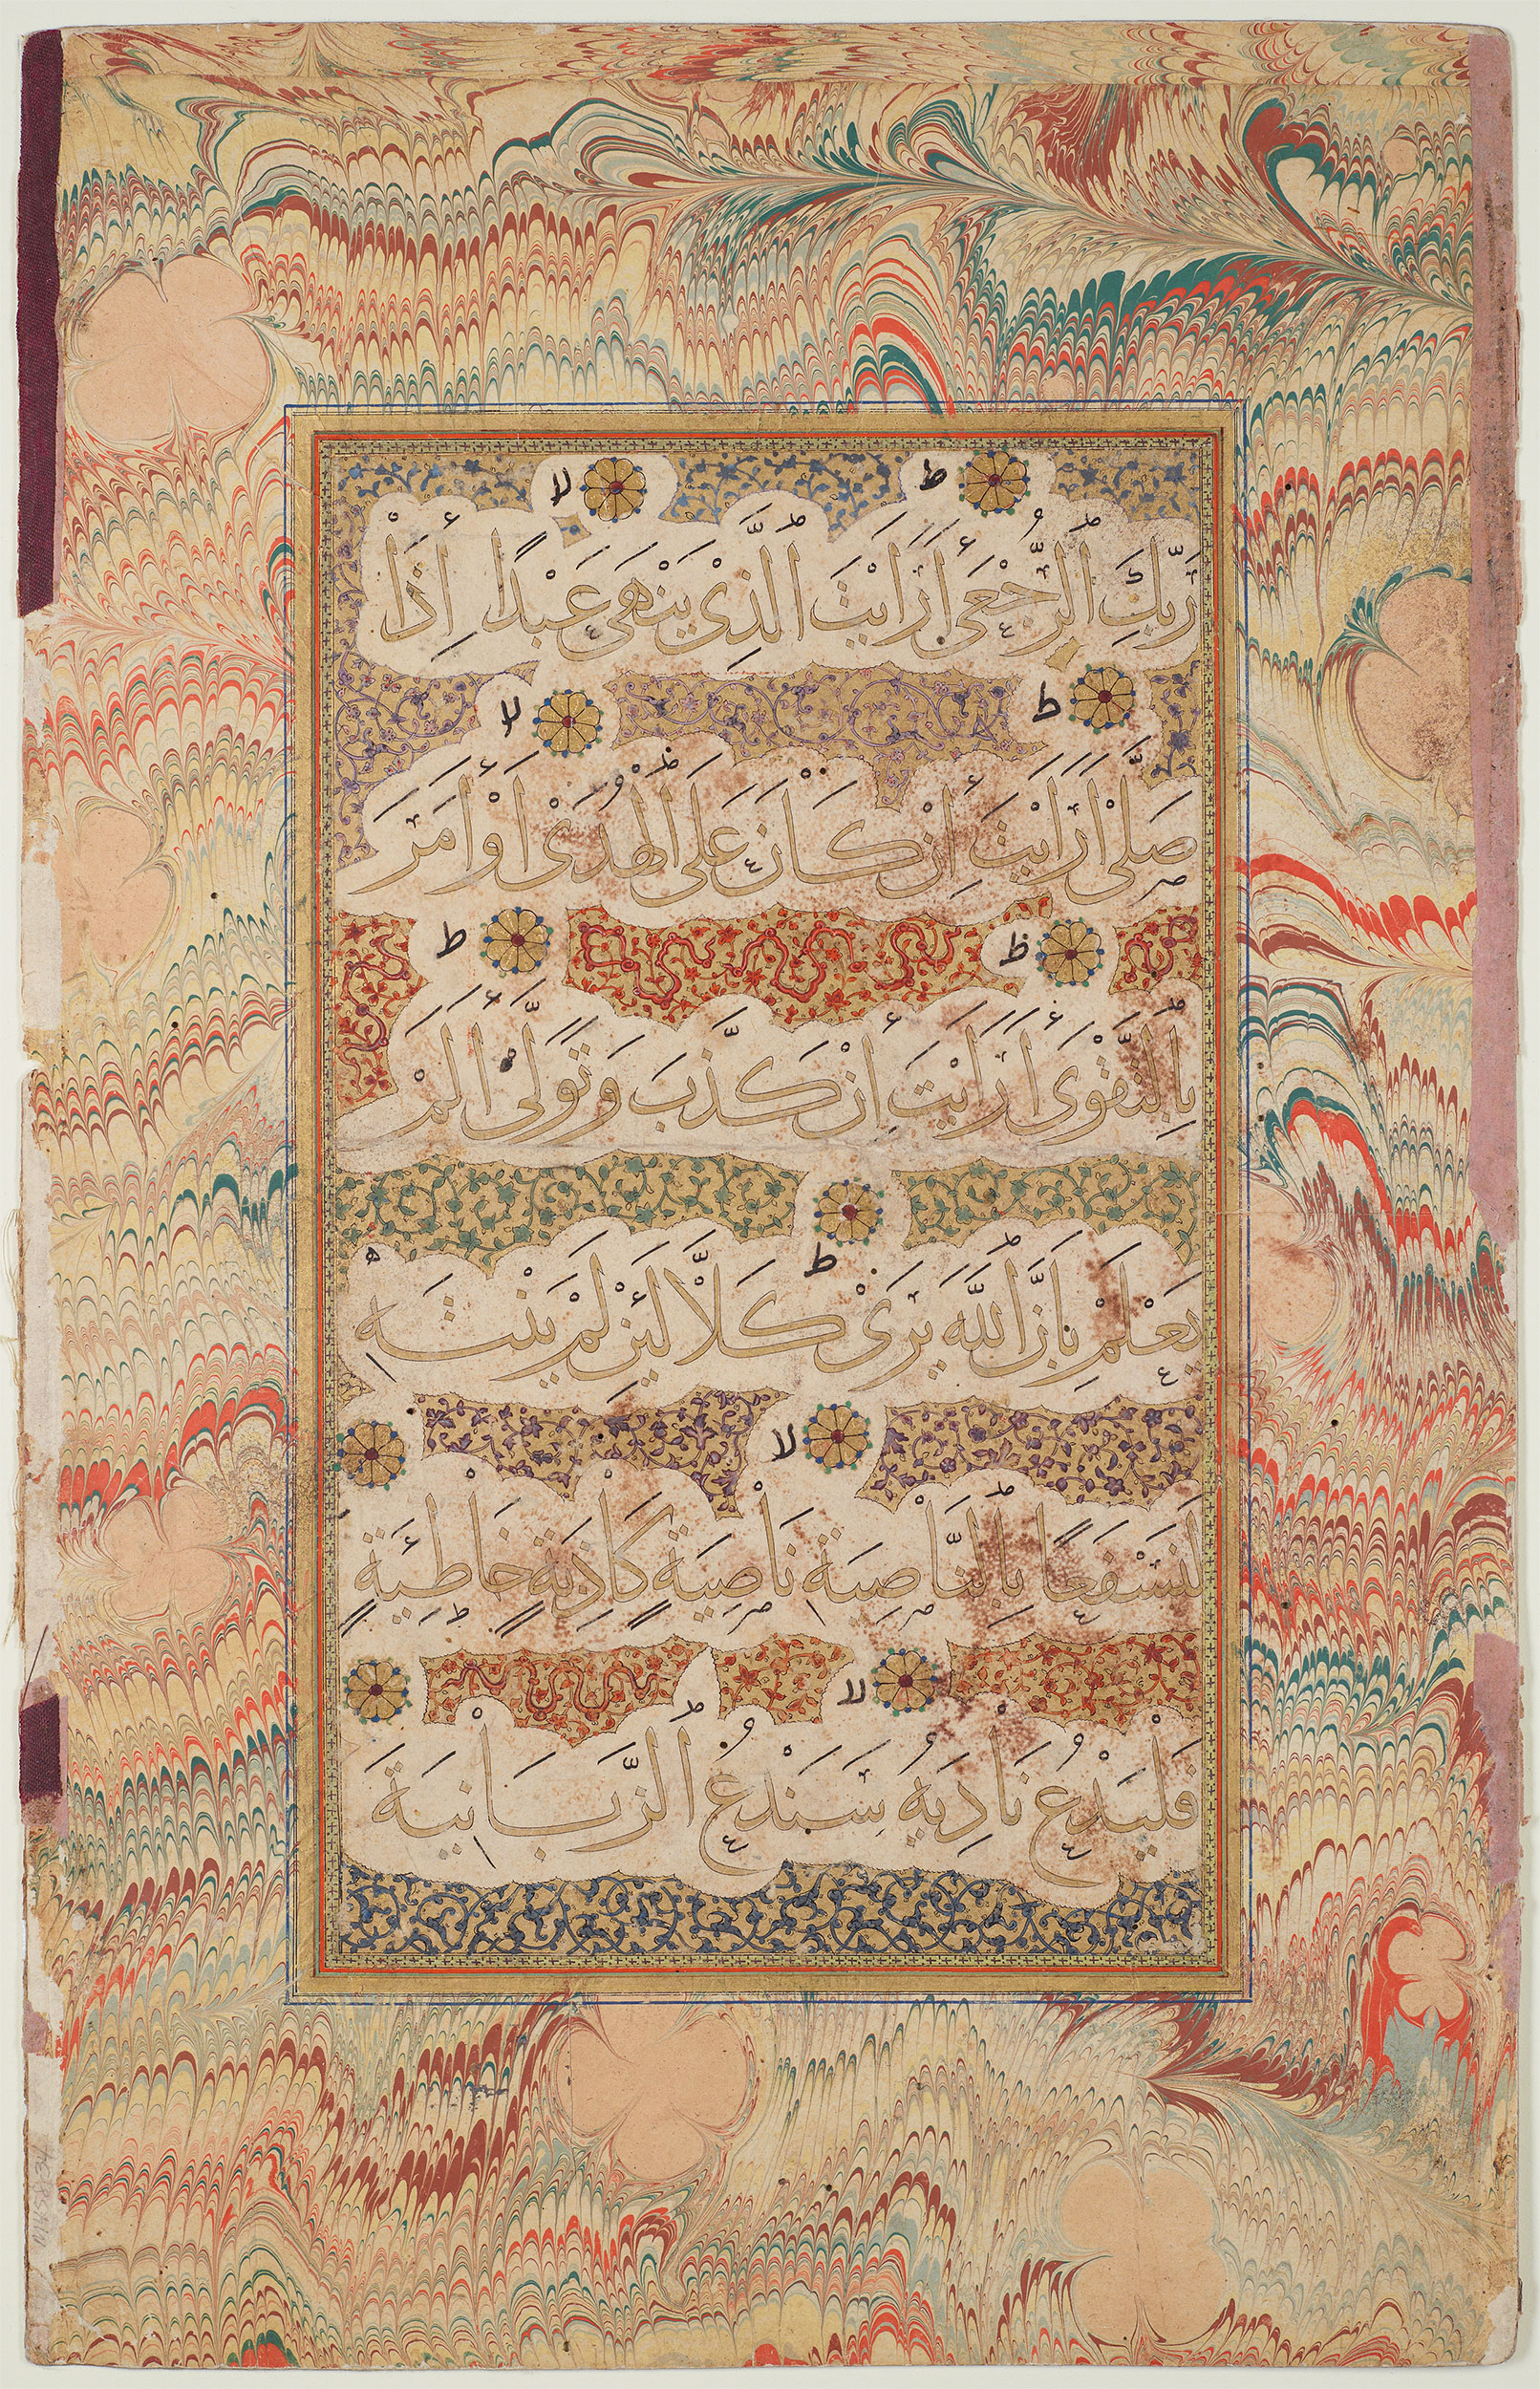 رَبِّكَ الرُّجْعَىٰ أَرَأَيْتَ الَّذِي يَنْهَىٰ عَبْدًا إِذَا
صَلَّىٰ أَرَأَيْتَ إِنْ كَانَ عَلَى الْهُدَىٰ أَوْ أَمَرَ
بِالتَّقْوَىٰ أَرَأَيْتَ إِنْ كَذَّبَ وَتَوَلَّىٰ أَلَمْ
يَعْلَمْ بِأَنَّ اللَّهَ يَرَىٰ كَلَّا لَئِنْ لَمْ يَنْتَهِ
لَنَسْفَعًا بِالنَّاصِيَةِ نَاصِيَةٍ كَاذِبَةٍ خَاطِئَةٍ
فَلْيَدْعُ نَادِيَهُ سَنَدْعُ الزَّبَانِيَةَ